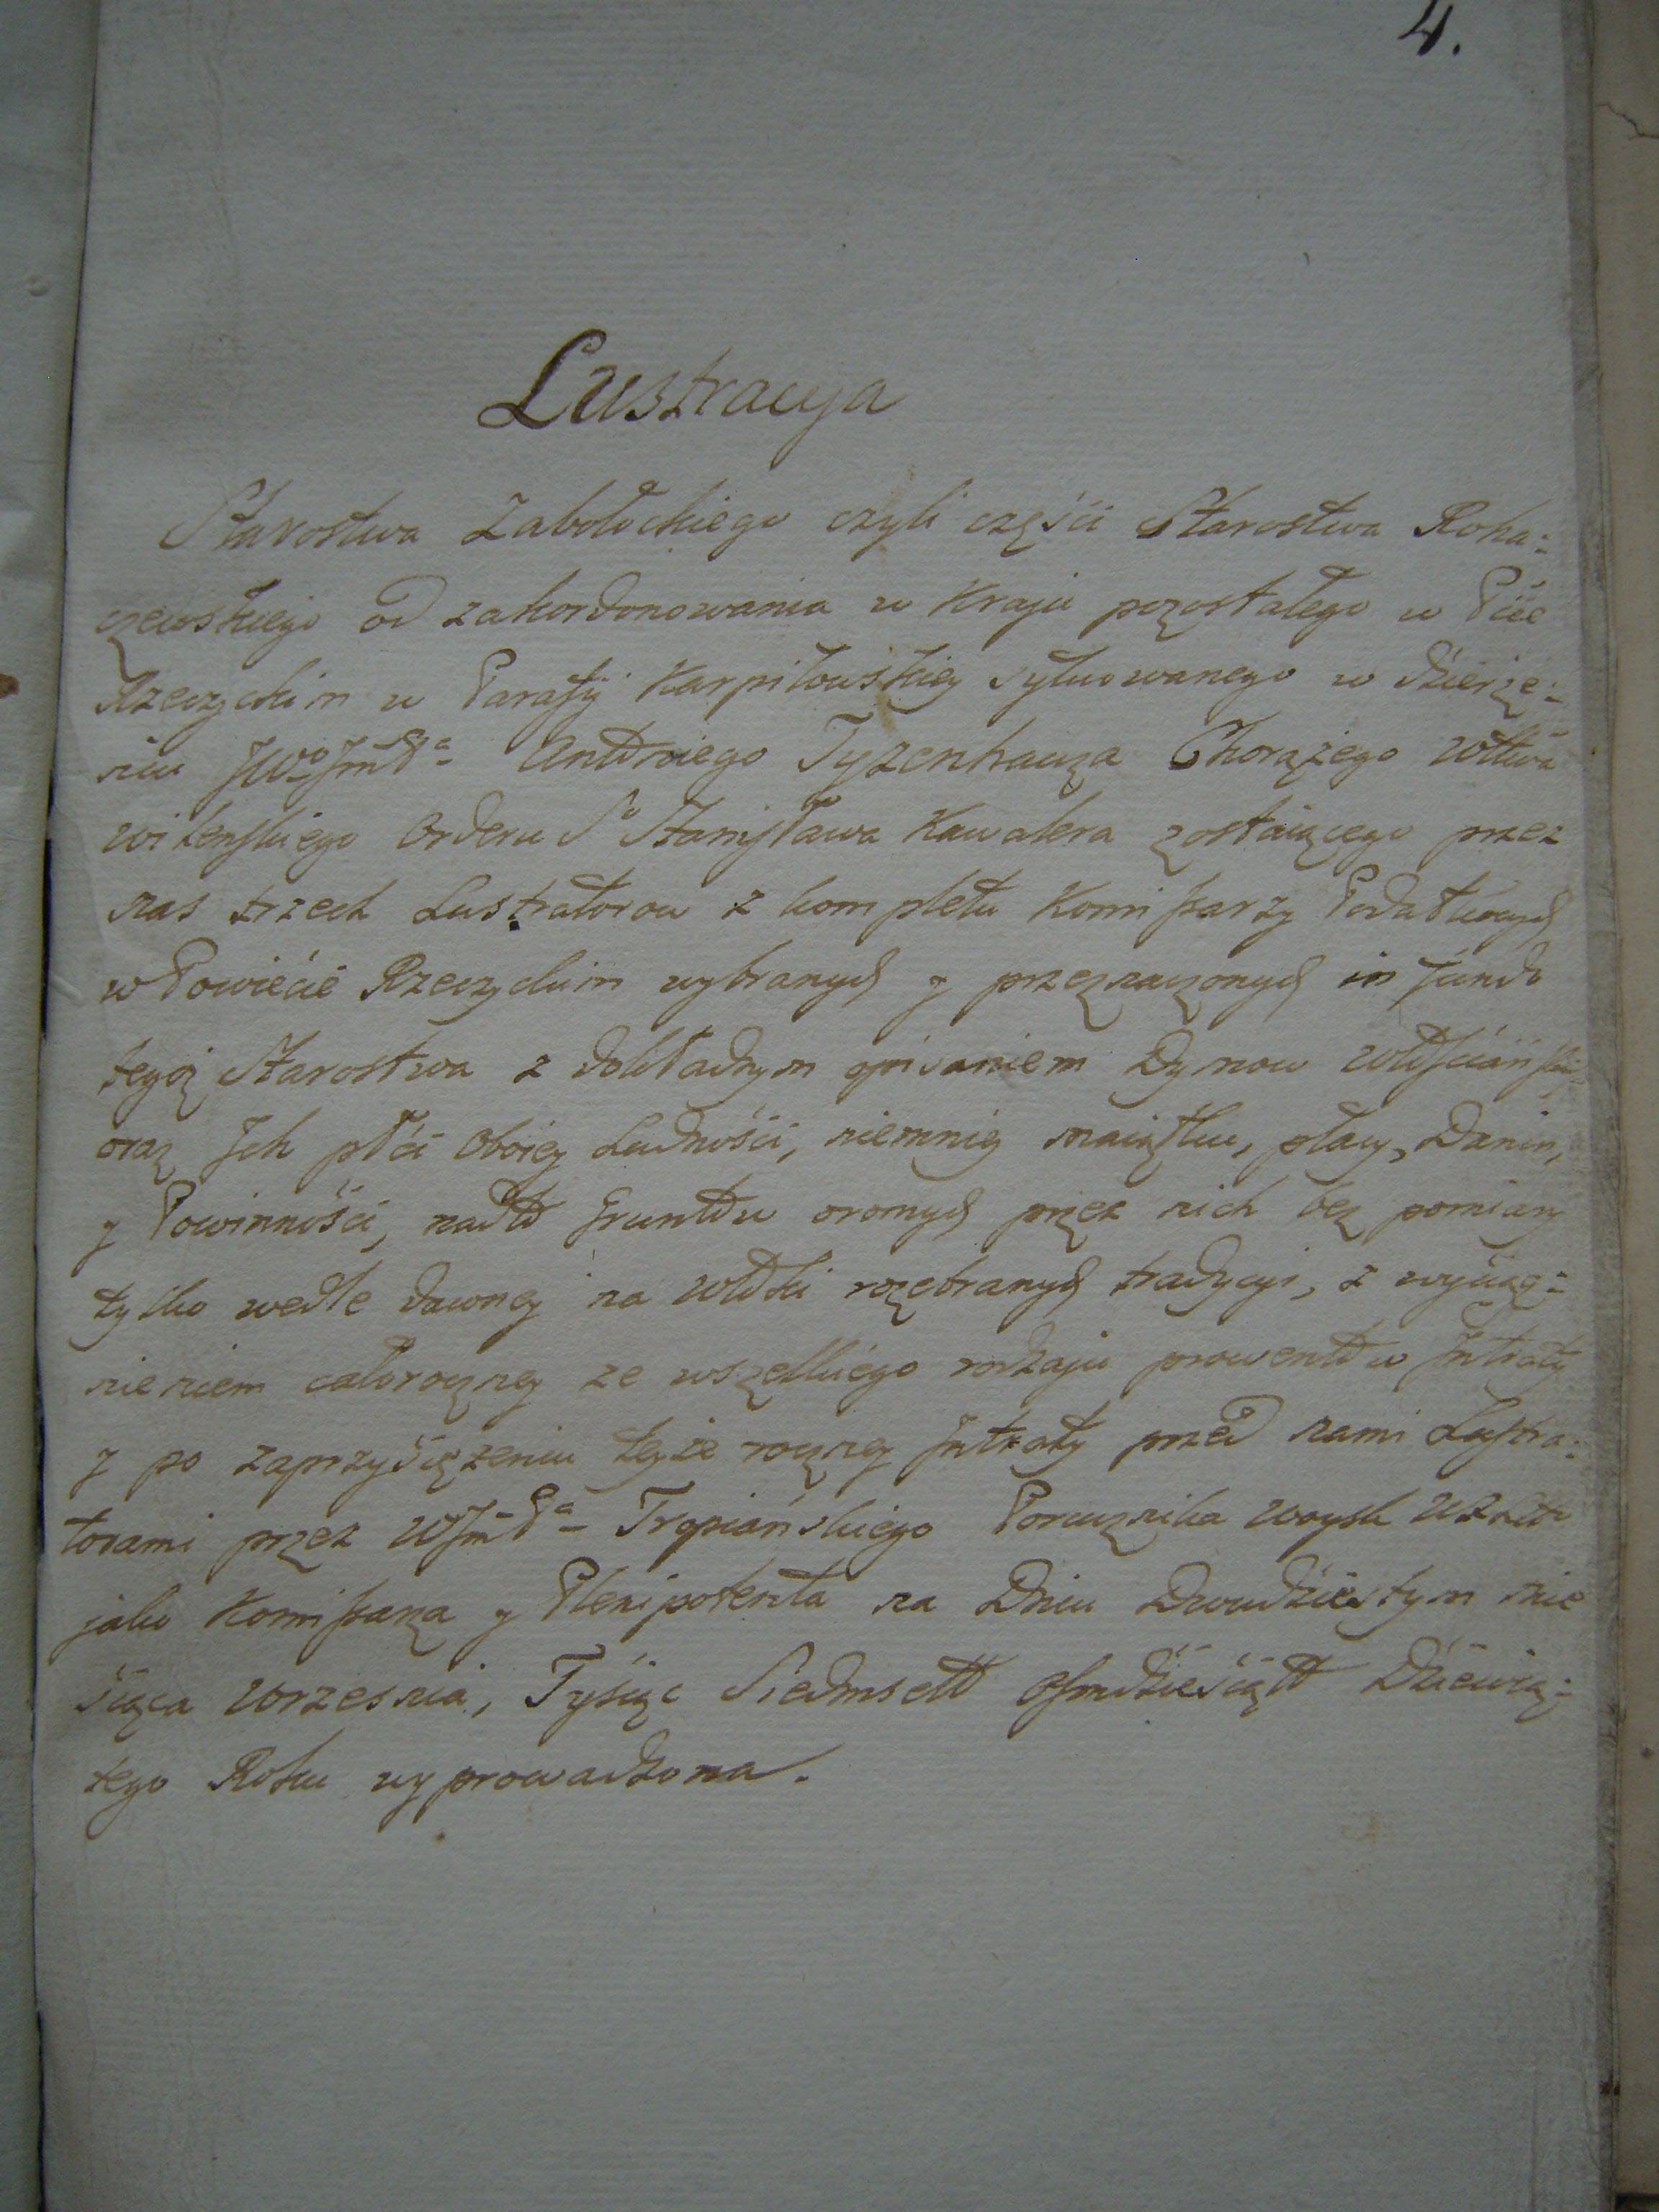 4.
Lustracyja
Starostwa Zabołockiego czyli części Starostwa Roha:
czewskiego od zakordonowania w Kraju pozostałego w Pcie
Rzeczyckim w Parafij Karpiłowskiey sytuowanego w dzierże:
niu JWo Jm Pa Antoniego Tyzenhauza Chorążego Wttwa
wilenskiego Orderu S° Stanisława Kawalera zostaiącego przez
nas trzech Lustratorow z kompletu Komissarzy Podatkowych
w Powiecie Rzeczyckim wybranych y przeznaczonych in fundo
tegoż Starostwa z dokładnym opisaniem Dymow włościańskich
oraz Ich płci oboiey Ludności, niemniey maiątku, płacy, Danin,
y Powinności, nadto Gruntow oromych przez nich bez pomiary
tylko wedle dawney na włoki rozebranych tradycyi, z wyciąg:
nieniem całoroczney ze wszelkiego rodzaju prowentow Intraty
y po zaprzysiężeniu teyże roczney Intraty przed nami Lustra:
torami przez WJm Pa Tropiańskiego Porucznika woysk
jako Komissarza y Plenipotenta na Dniu Dwudziestym mie
siąca Wrzesnia, Tysiąc Siedmsett osmdziesiątt Dziewią:
tego Roku wyprowadzona.